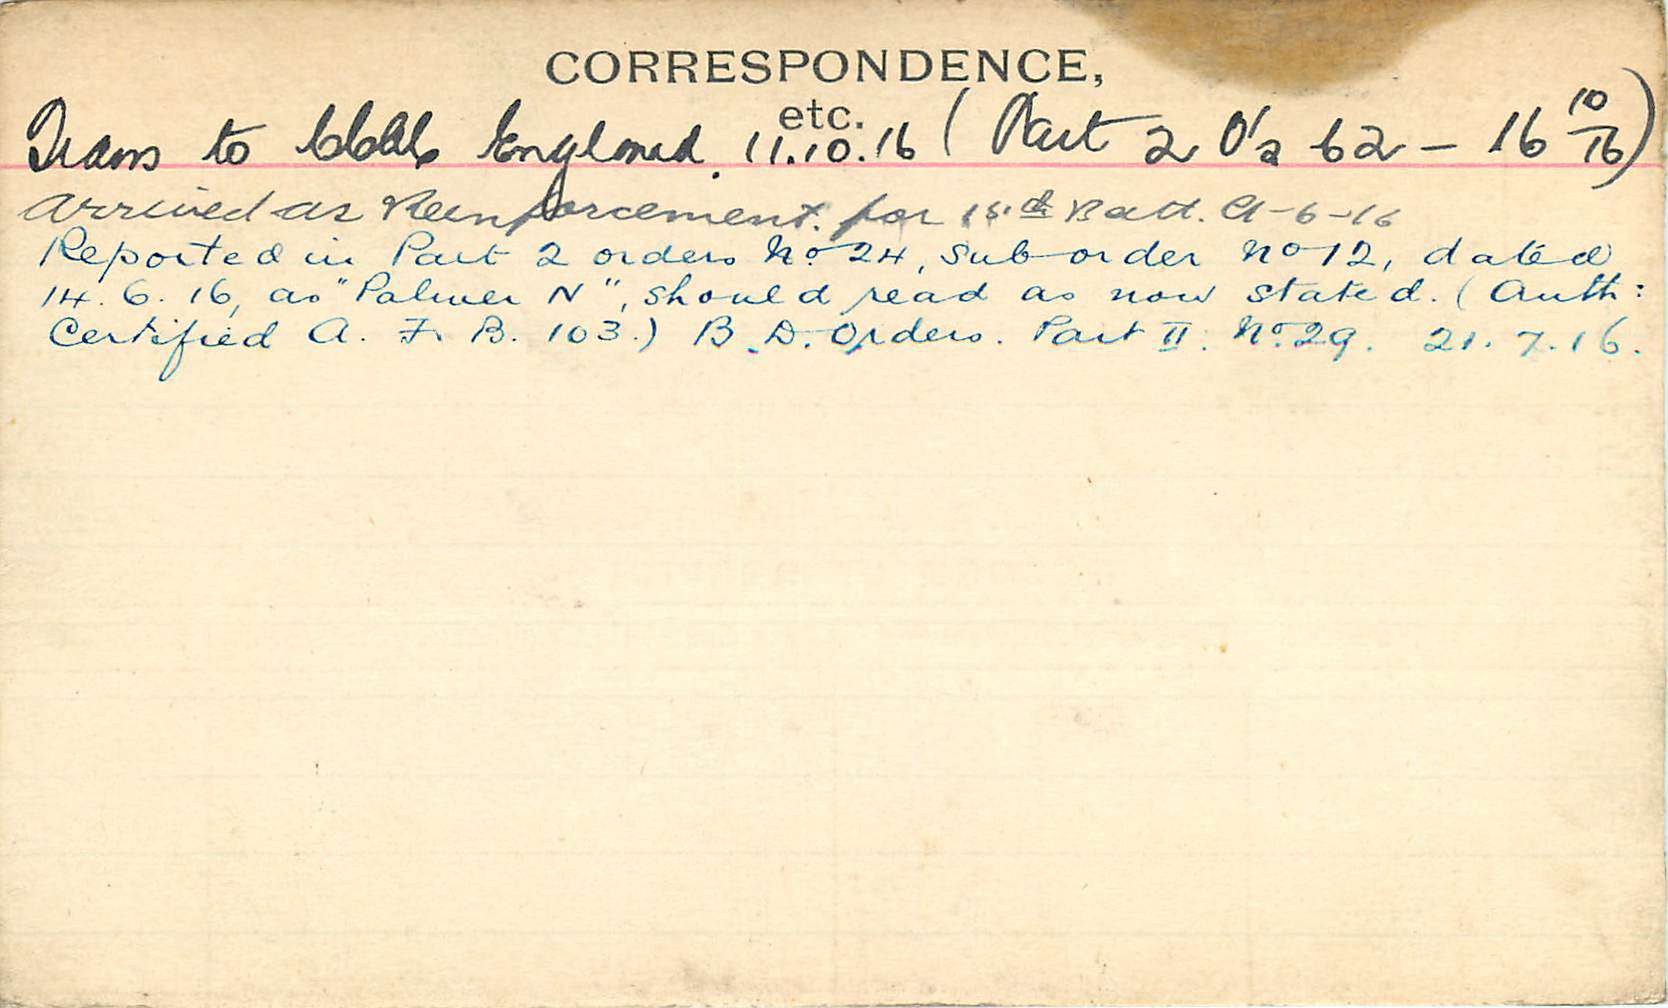 CORRESPONDENCE,
etc.
Trans to CCAC England. 11.10.16 (Part 2 O's 62 – 16 10/16)
Arrived as Reinforcement. for Batt. 9-6-16
Reported in Part 2 orders No 24, Sub-order No 12, dated
14.6.16, as "Palmer N", should read as now stated. (Auth:
Certified A. F. B. 103.) B.D. Orders. Part II. No. 29. 21.7.16.